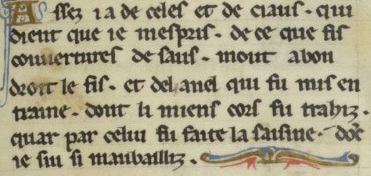 Assez i a de celes et de ciaus · qui
dient que ie mespris · de ce que fis
couuertures de saus · mout a bon
droit le fis · et del anel qui fu mis en
traine · dont li miens cors fu trahiz ·
quar par celui fu faite la saisine · dõt
ie sui si maubailliz ·